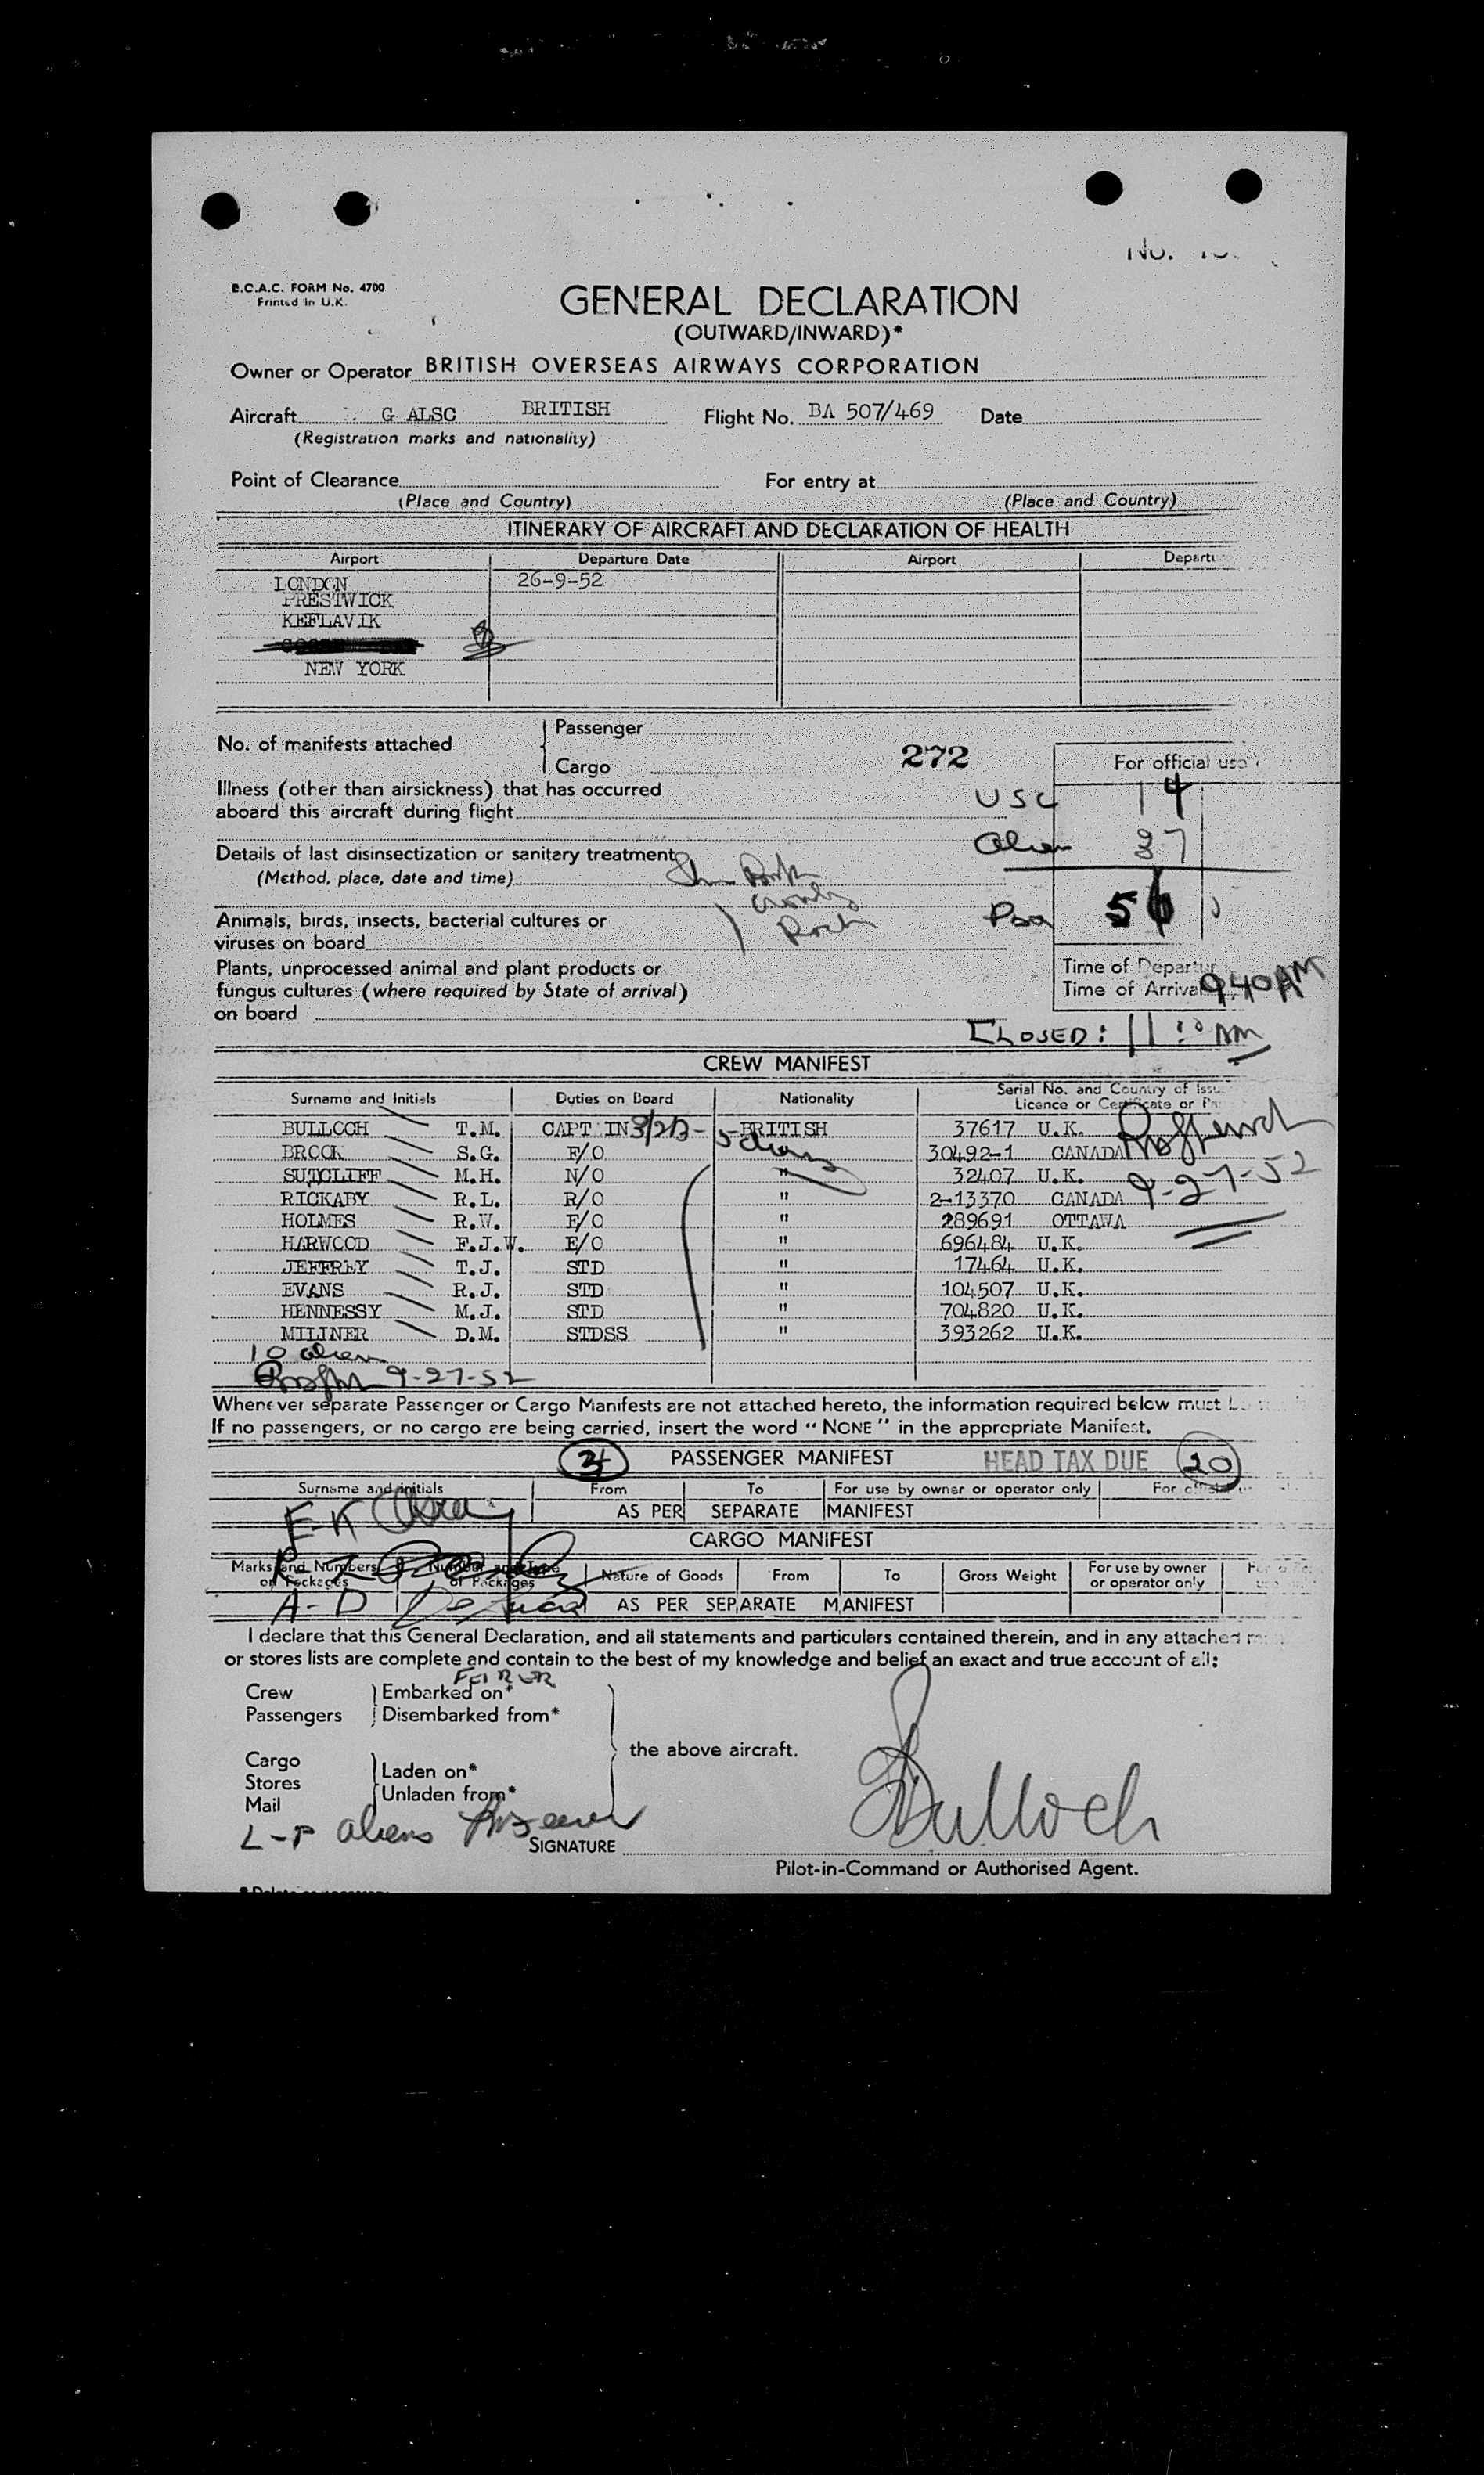 B.O.A.C. FORM No. 4700
Printed in U.K.
No.
GENERAL DECLARATION
(OUTWARD/INWARD)*
Owner or Operator BRITISH OVERSEAS AIRWAYS CORPORATION
Aircraft G ALSC BRITISH Flight No. BA 507/469 Date
(Registration marks and nationality)
Point of Clearance For entry at
(Place and Country) (Place and Country)
ITINERARY OF AIRCRAFT AND DECLARATION OF HEALTH
Airport Departure Date Airport
LONDON 26-9-52
PRESTWICK
KEFLAVIK
NEW YORK
No. of manifests attached
Passenger
Cargo
272
For official use
Illness (other than airsickness) that has occurred
aboard this aircraft during flight
USC 14
Details of last disinsectization or sanitary treatment
Alien 37
(Method, place, date and time)
Animals, birds, insects, bacterial cultures or
viruses on board
Plants, unprocessed animal and plant products or
fungus cultures (where required by State of arrival)
on board
Time of Departur
Time of Arrival 9.40 AM
CLOSED: 11:10 AM
CREW MANIFEST
Surname and Initials Duties on Board Nationality Serial No. and Country of Issu
Licence or Certificate or Pa
BULLOCH T.M. CAPT IN BRITISH 37617 U.K.
BROOK S.G. F/O 30492-1 CANADA
SUTCLIFF M.H. N/O " 32407 U.K. 9-27-52
RICKABY R.L. R/O " 2-13370 CANADA
HOLMES R.W. E/O " 289691 OTTAWA
HARWOOD F.J.W. E/O " 696484 U.K.
JEFFREY T.J. STD " 17464 U.K.
EVANS R.J. STD " 104507 U.K.
HENNESSY M.J. STD " 704820 U.K.
MILINER D.M. STDSS " 393262 U.K.
10 alien
9-27-52
Whenever separate Passenger or Cargo Manifests are not attached hereto, the information required below must
If no passengers, or no cargo are being carried, insert the word "NONE" in the appropriate Manifest.
PASSENGER MANIFEST HEAD TAX DUE 20
Surname and initials From To For use by owner or operator only For official
AS PER SEPARATE MANIFEST
E-K
CARGO MANIFEST
Marks and Numbers on Packages Number and Type of Packages Nature of Goods From To Gross Weight For use by owner or operator only
AS PER SEPARATE MANIFEST
A-D
I declare that this General Declaration, and all statements and particulars contained therein, and in any attached
or stores lists are complete and contain to the best of my knowledge and belief an exact and true account of all:
Crew Embarked on*
Passengers Disembarked from*
the above aircraft.
Cargo Laden on*
Stores
Mail Unladen from*
L-P aliens
SIGNATURE Bulloch
Pilot-in-Command or Authorised Agent.